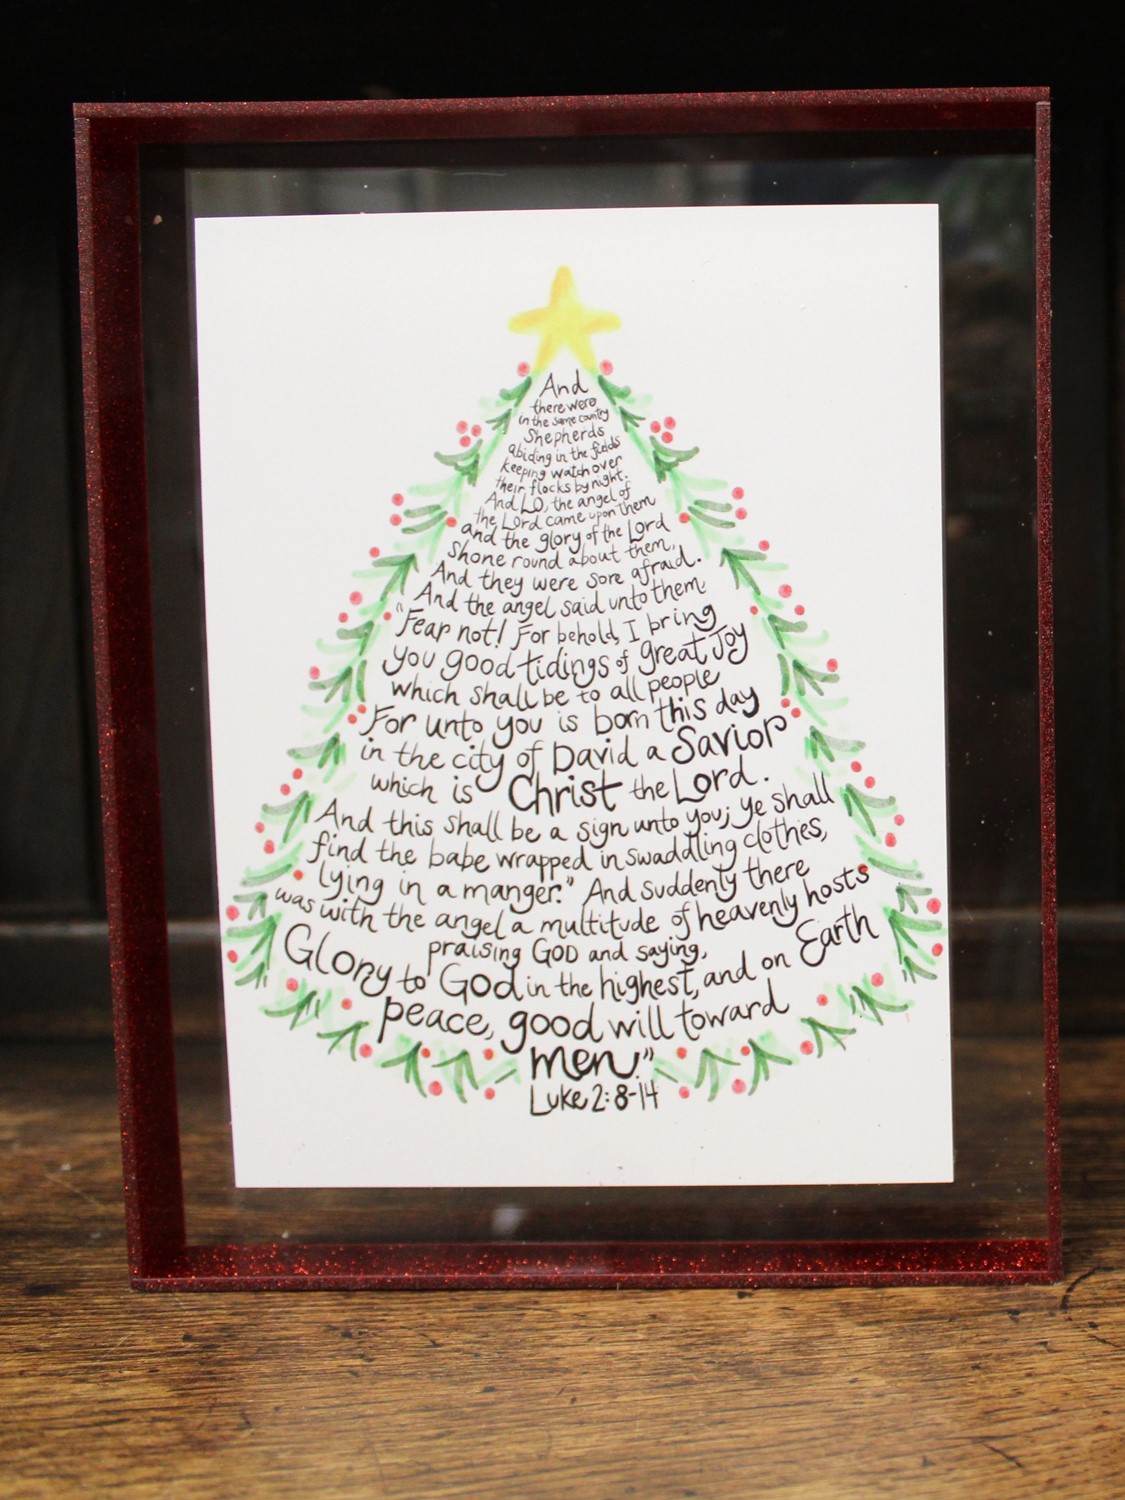 And
there were
in the same country
Shepherds
abiding in the fields
keeping watch over
their flocks by night.
And LO, the angel of
the Lord came upon them
and the glory of the Lord
shone round about them,
And they were sore afraid.
And the angel said unto them,
"Fear not! For behold, I bring
you good tidings of great Joy
which shall be to all people
For unto you is born this day
in the city of David a Savior
which is Christ the Lord.
And this shall be a sign unto you; ye shall
find the babe wrapped in swaddling clothes,
lying in a manger." And suddenly there
was with the angel a multitude of heavenly hosts
praising GOD and saying,
Glory to God in the highest, and on Earth
peace, good will toward
men."
Luke 2:8-14